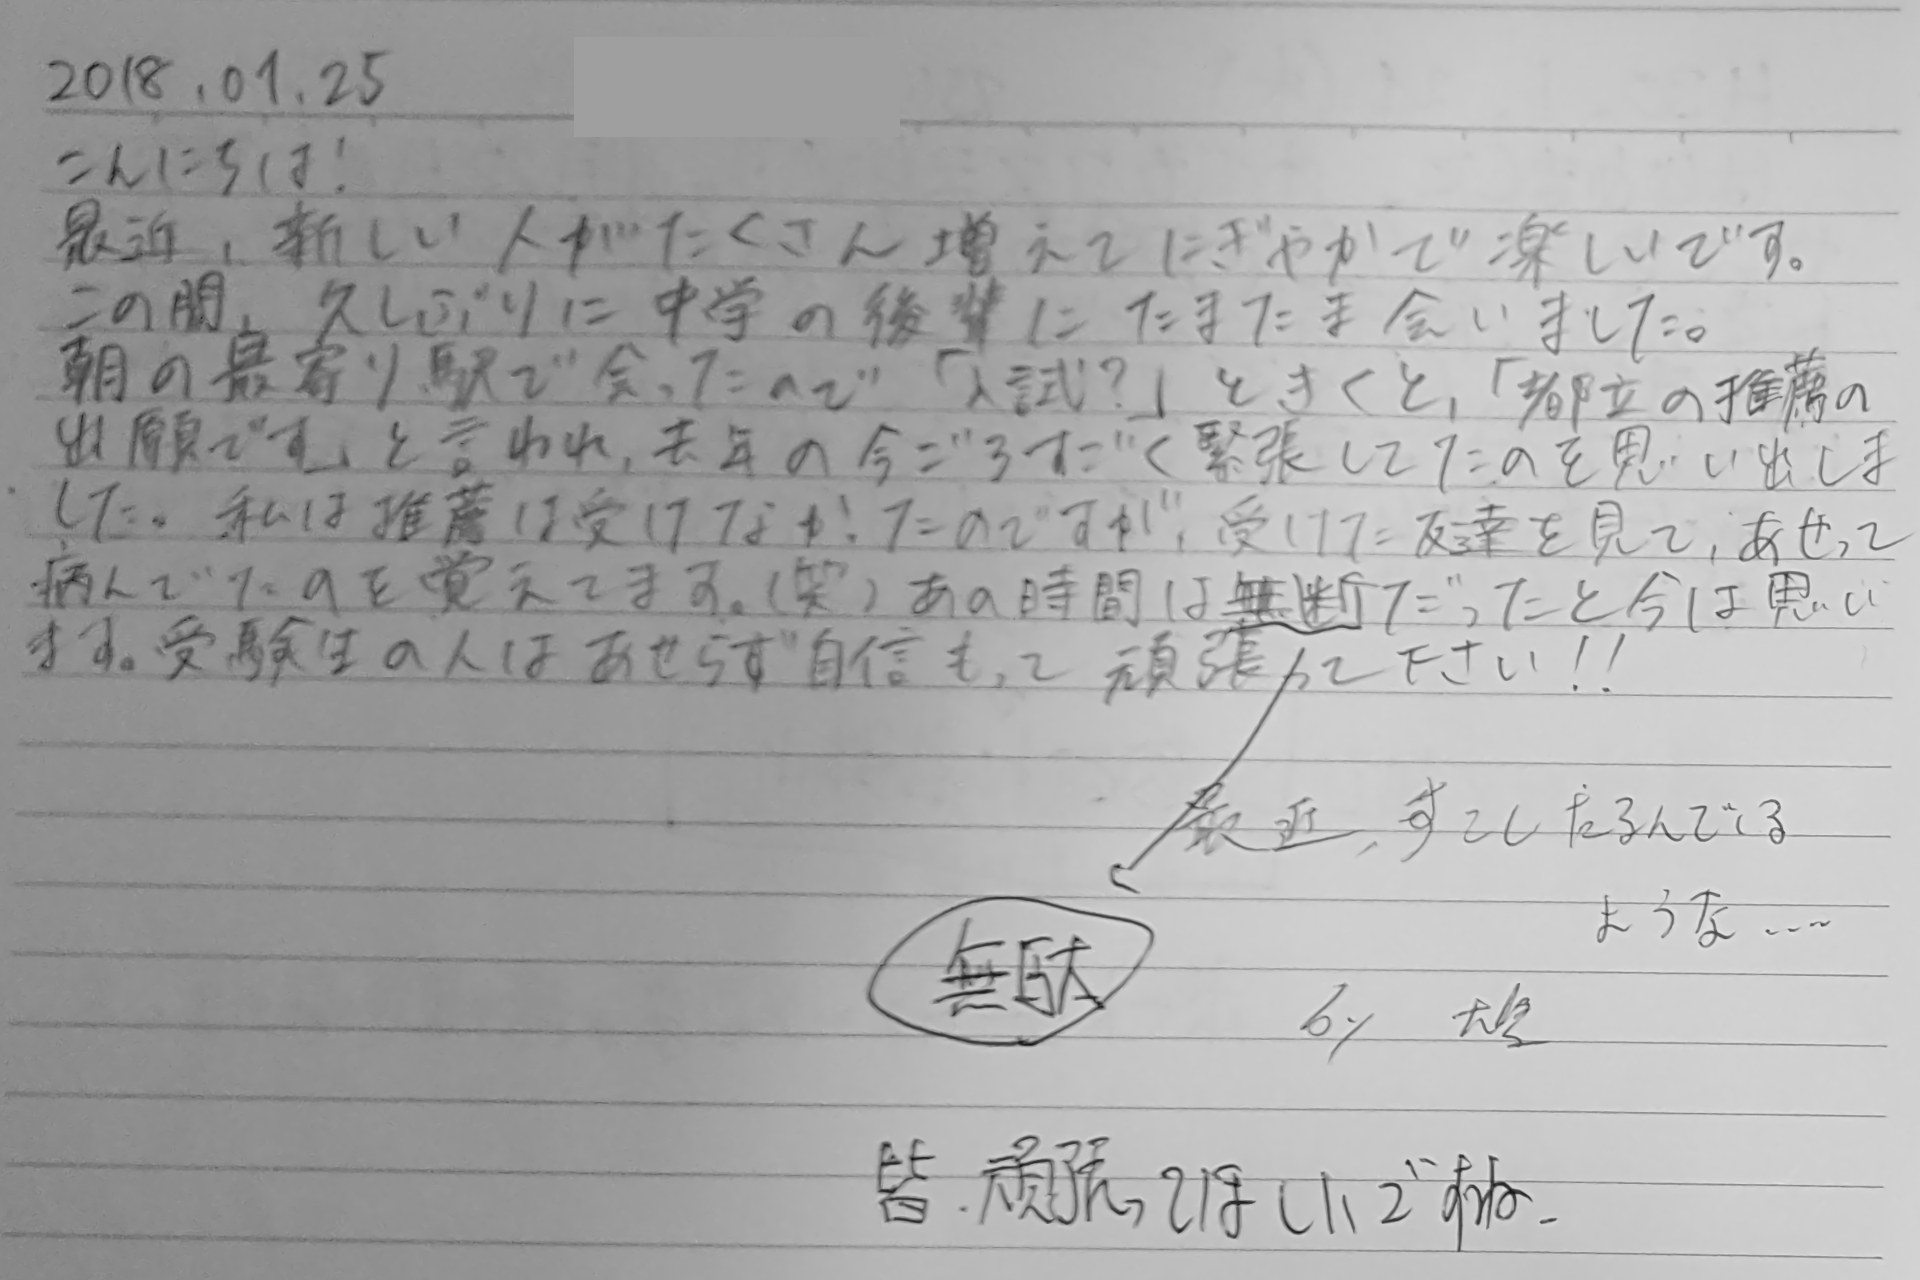 2018.01.25
こんにちは!
最近、新しい人がたくさん増えてにぎやかで楽しいです。
この間、久しぶりに中学の後輩にたまたま会いました。
朝の最寄り駅で会ったので「入試?」ときくと、「都立の推薦の
出願です」と言われ、去年の今ごろすごく緊張してたのを思い出しま
した。私は推薦は受けてなかったのですが、受けた友達を見て、あせって
病んでたのを覚えてます。(笑)あの時間は無断だったと今は思い
ます。受験生の人はあせらず自信もって頑張って下さい!!
最近、すこしたるんでいる
ような....
無駄
by
皆、頑張ってほしいですね。